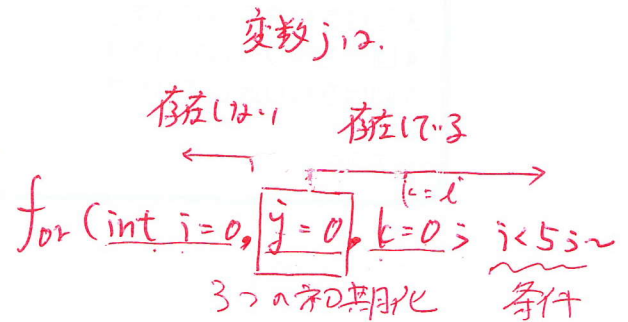 変数jは.
存在しない 存在している
k=i
for (int i=0, j=0, k=0; i<5;~
3つの初期化 条件